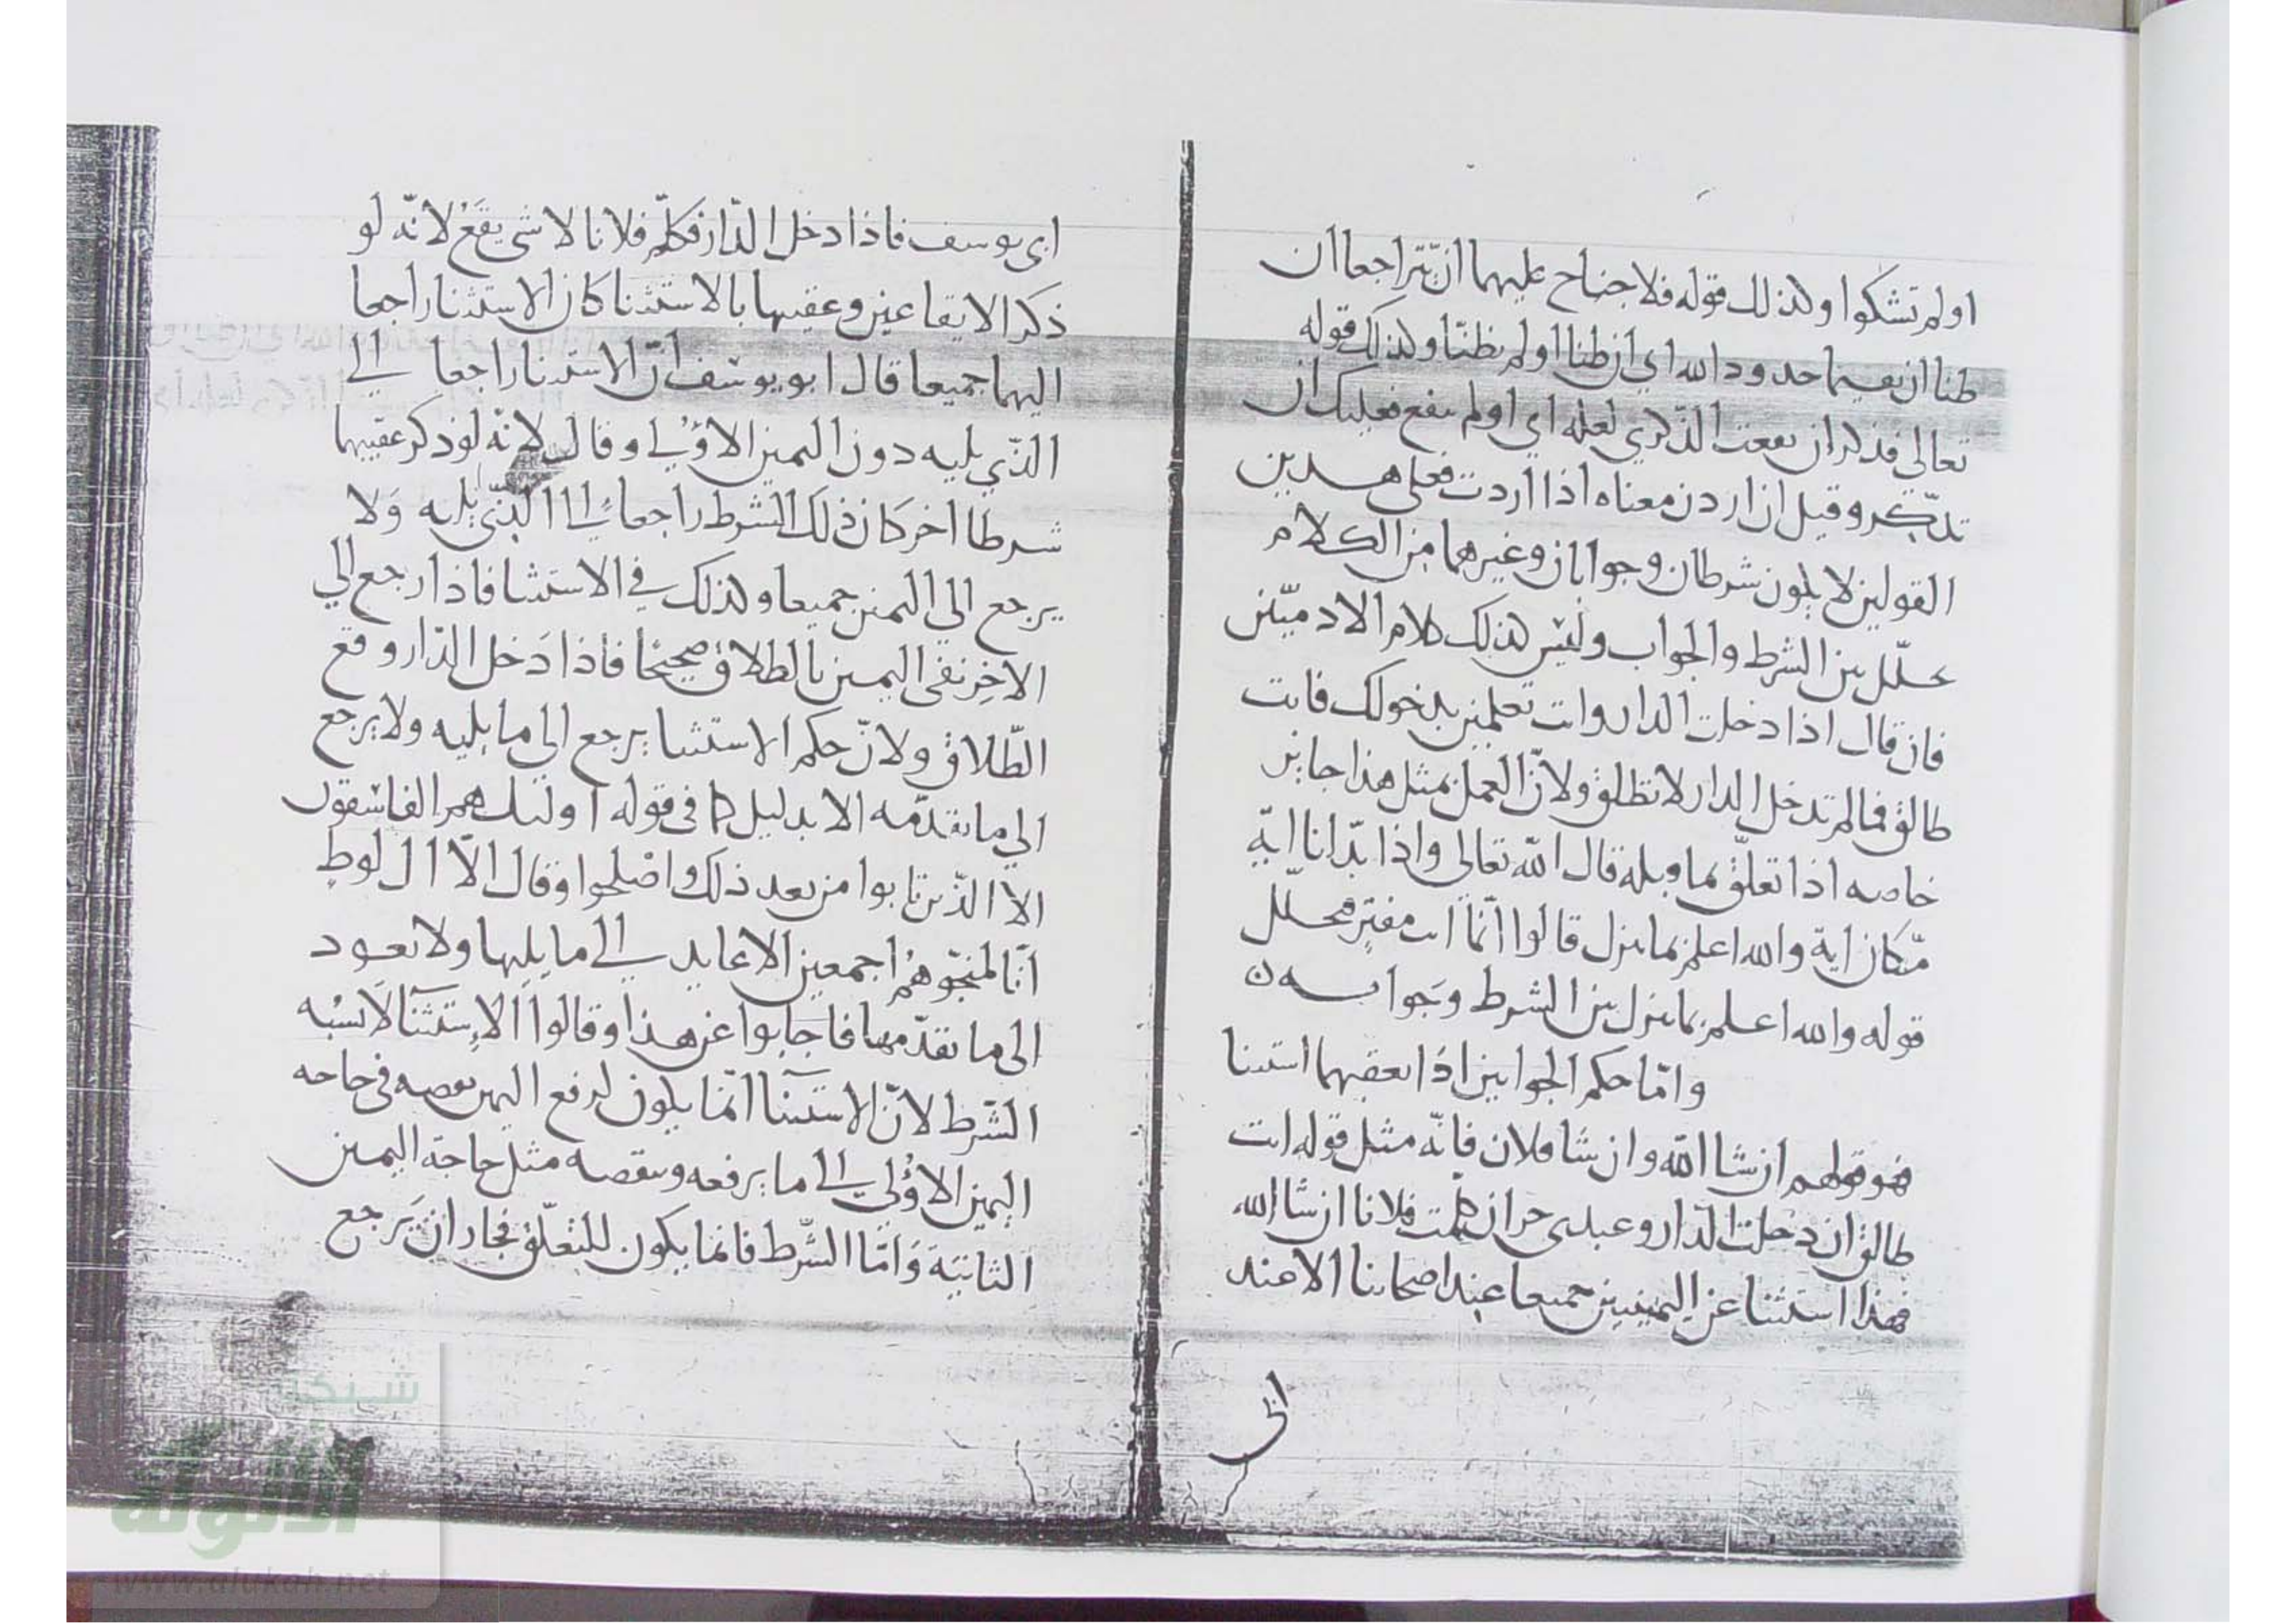 اولم تشكوا وكذلك قوله فلا جناح عليهما ان يتراجعا ان
ظنا ان يقيما حدود الله اي ان ظنا اولم يظنا وكذلك قوله
تعالى فذكر ان نفعت الذكري لعله اي اولم ينفع فعليك ان
تذكر وقيل ان اردن معناه اذا اردن فعلى هذين
القولين لا يكون شرطان وجوابان وغيرهما من الكلام
تخلل بين الشرط والجواب وليس كذلك كلام الادميين
فان قال اذا دخلت الدار وانت تعلمين بدخولك فانت
طالق فما لم تدخل الدار لا تطلق ولان العمل بمثل هذا جايز
خاصه اذا تعلق بما قبله قال الله تعالى واذا بدلنا اية
مكان اية والله اعلم بما ينزل قالوا انما انت مفتر تخلل
قوله والله اعلم بما ينزل بين الشرط وجوابه ن
واما حكم الجوابين اذا تعقبهما استثنا
فهو قولهم ان شا الله وان شا فلان فانه مثل قوله انت
طالق ان دخلت الدار وعبدى حر ان كلمت فلانا ان شا الله
فهذا استثنا عن اليمينين جميعا عند اصحابنا الا عند
ابى
ابى يوسف فاذا دخل الدار فكلم فلانا لا شي يقع لانه لو
ذكر الايقاعين وعقبها بالاستثنا كان الاستثنا راجعا
اليهما جميعا قال ابو يوسف ان الاستثنا راجعا الي
الذي يليه دون اليمين الاولي وقال لانه لو ذكر عقيبها
شرطا اخر كان ذلك الشرط راجعا الي الذي يليه ولا
يرجع الي اليمين جميعا وكذلك في الاستثنا فاذا رجع الي
الاخر نفى اليمين بالطلاق صحيحا فاذا دخل الدار وقع
الطلاق ولان حكم الاستثنا يرجع الي ما يليه ولا يرجع
الي ما تقدمه الا بدليل كما فى قوله اوليك هم الفاسقون
الا الذين تابوا من بعد ذلك واصلحوا وقال الا ال لوط
انا لمنجوهم اجمعين الا عايد الي ما يليها ولا تعود
الى ما تقدمها فاجابوا عن هذا وقالوا الاستثنا لا يشبه
الشرط لان الاستثنا انما يكون لرفع اليمين نقصه فى حاجه
اليمين الاولي الي ما يرفعه وينقصه مثل حاجة اليمين
الثانية واما الشرط فانما يكون للتعلق فجاز ان يرجع
شبكة
الألوكة
www.alukah.net